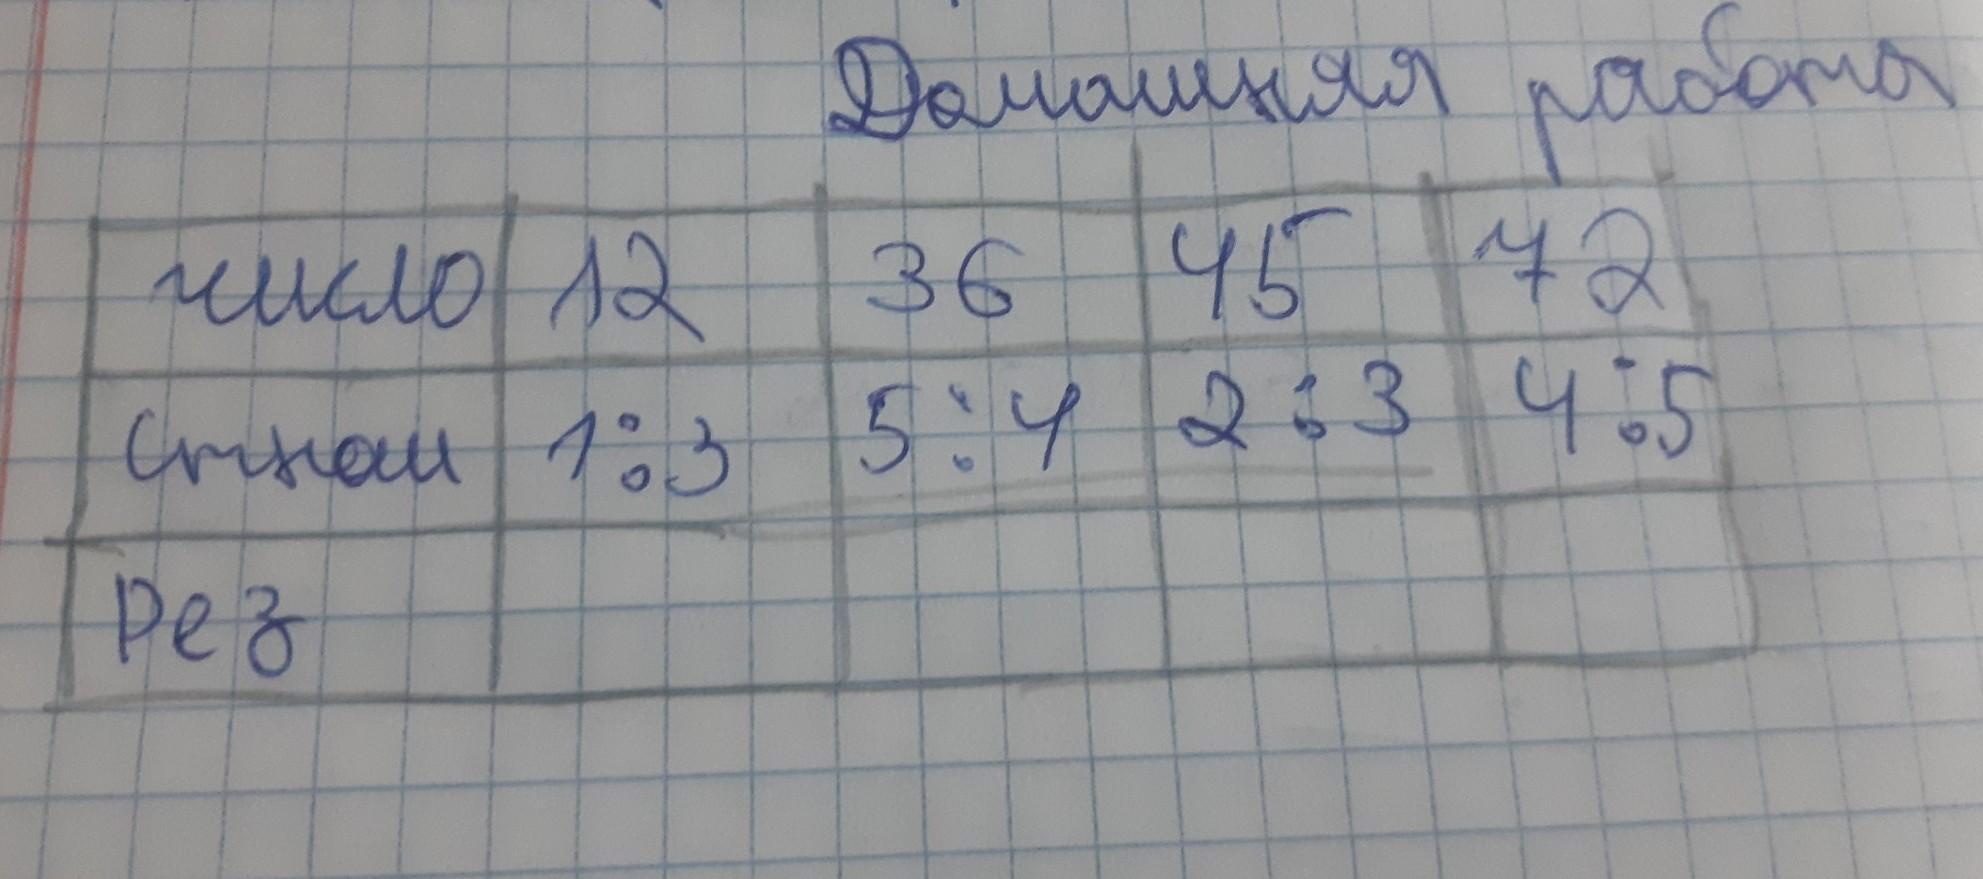 Домашняя работа
число 12 36 45 72
стнош 1:3 5:4 2:3 4:5
Рез